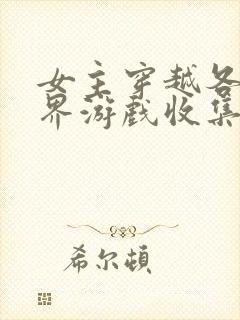 女主穿越各
界游戏收集
希尔顿